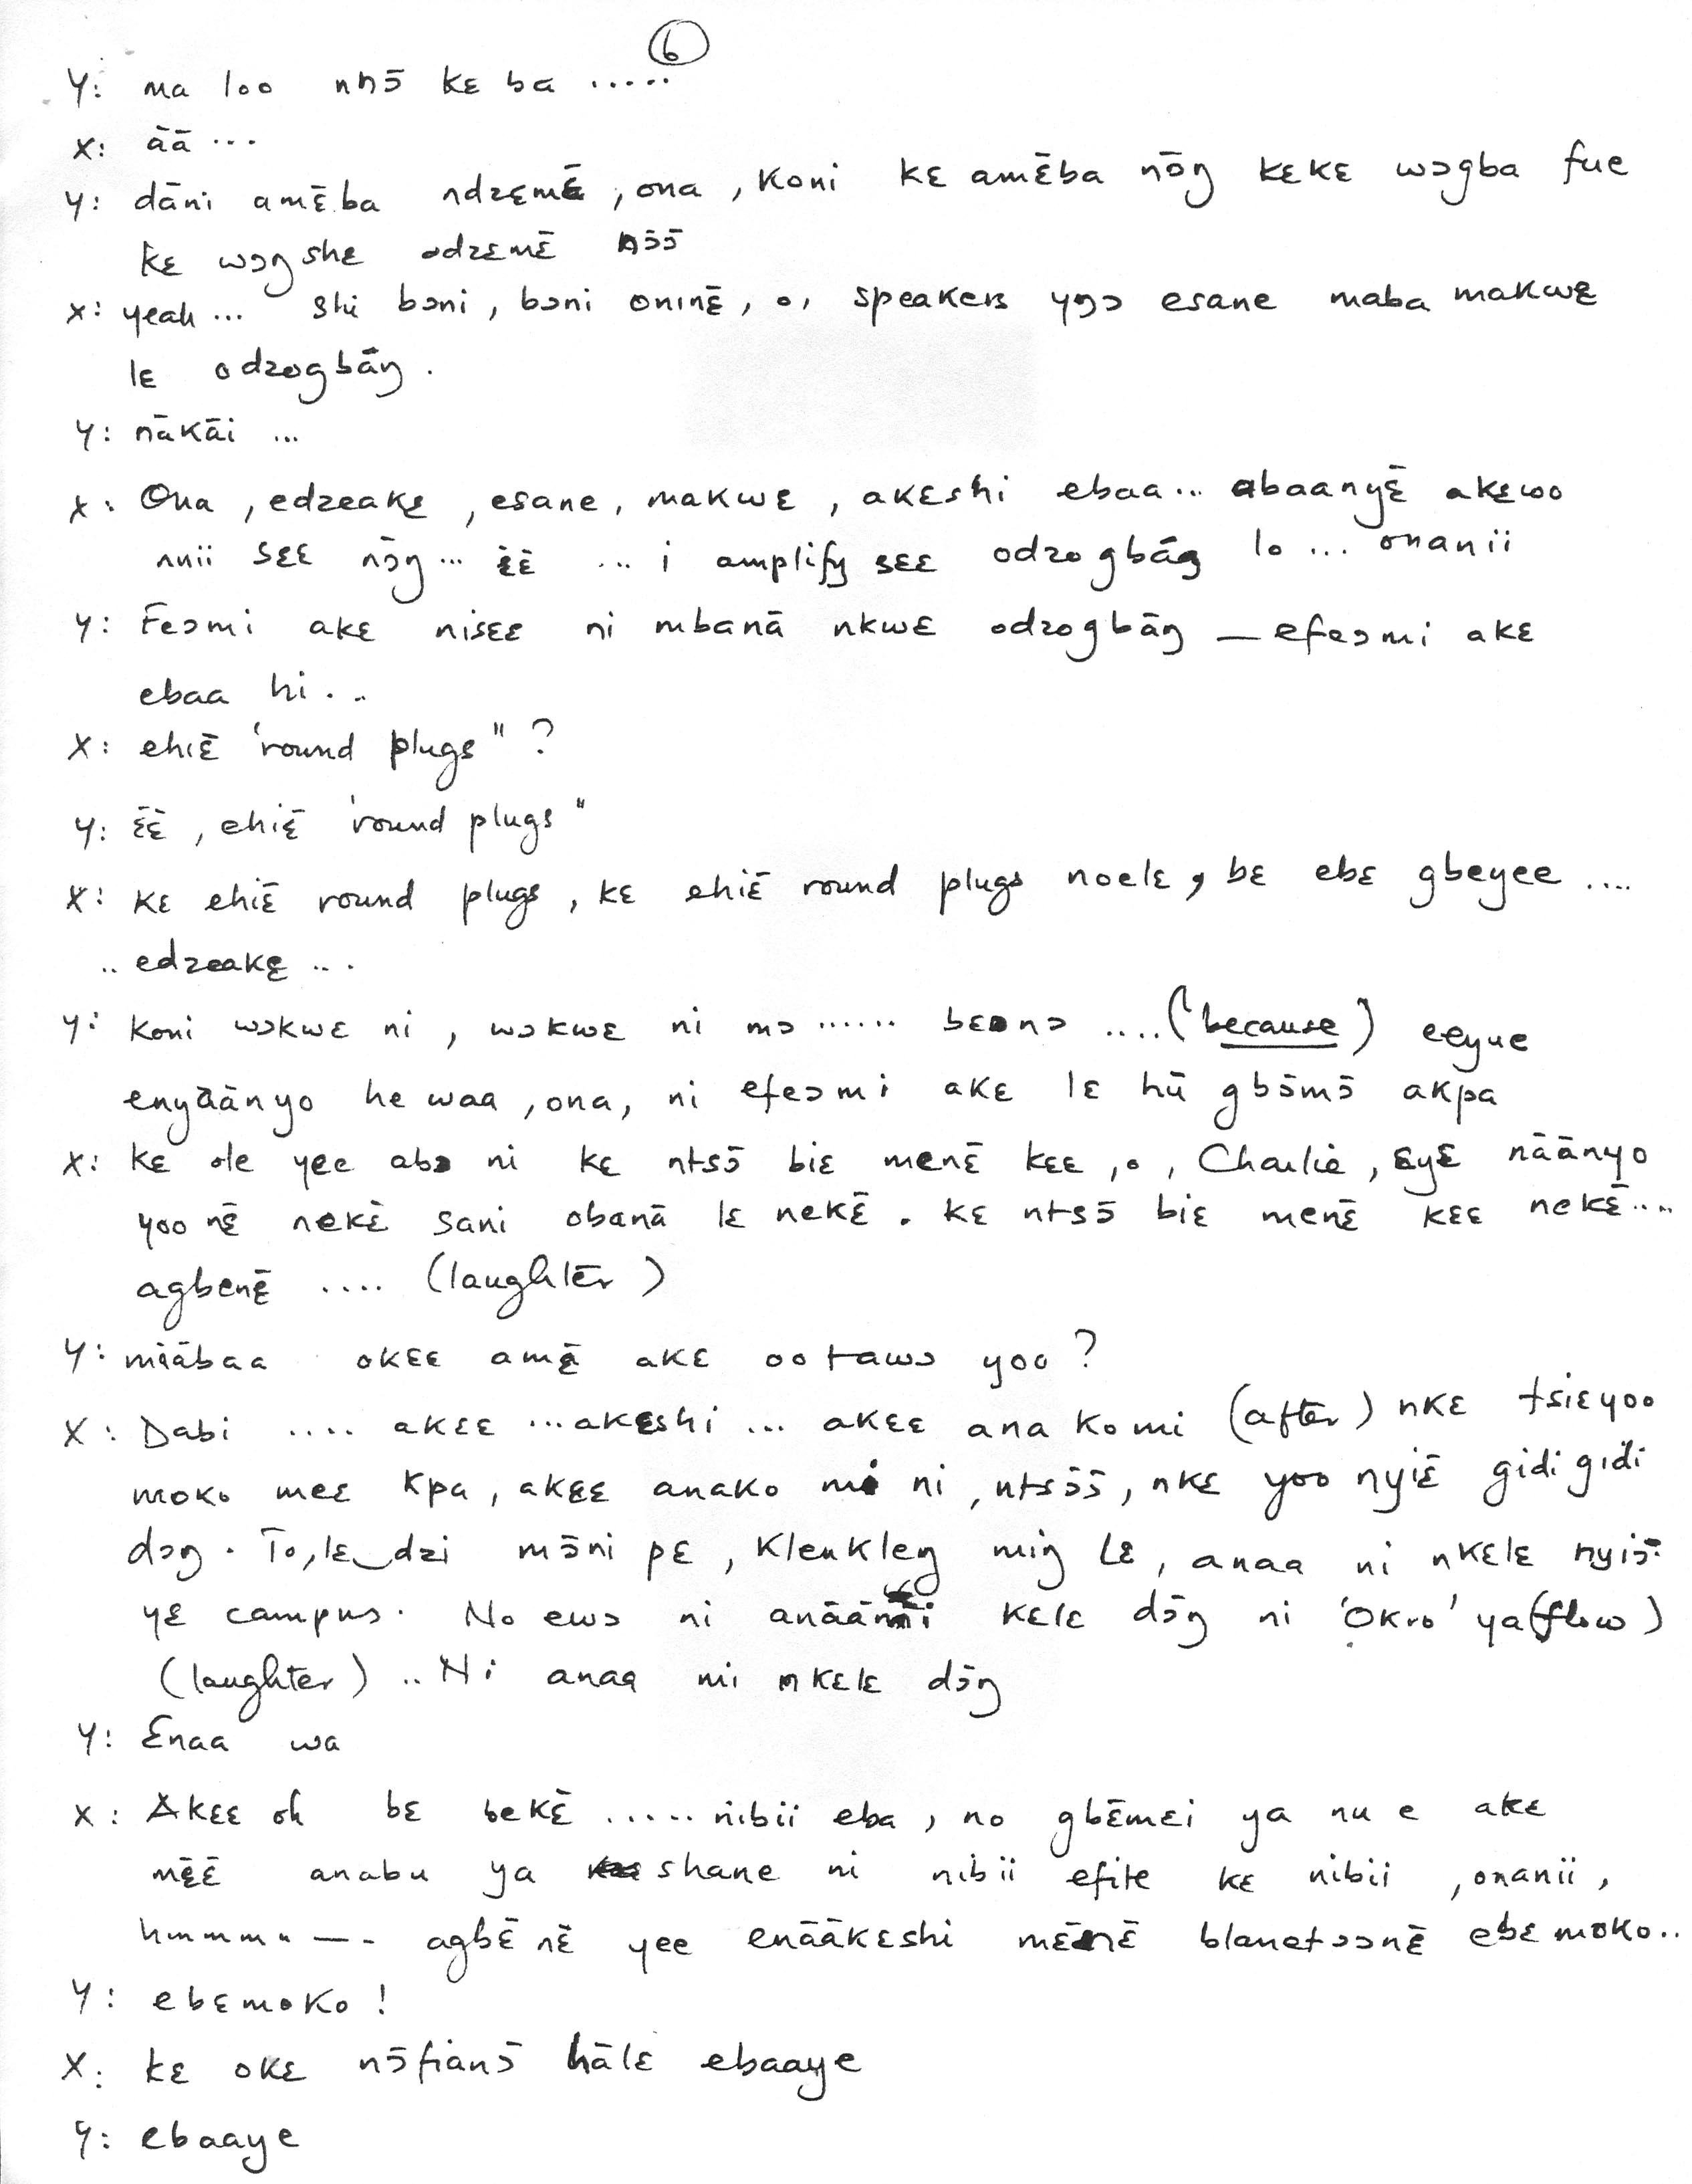 6
Y: ma loo nhɔ̄ kɛ ba .....
X: āā ...
Y: dāni amɛ̄ba ndzɛmɛ̄, ona, Koni kɛ amɛ̄ba nɔ̄ŋ kɛkɛ wɔgba fue
kɛ wɔŋshɛ odzɛmɛ̄ nɔ̄ɔ̄
X: yeah ... shi bɔni, bɔni oninɛ̄, o, speakers yɔɔ esane maba makwɛ
lɛ odzogbāŋ.
Y: nākāi ...
X: Ona, edzeakɛ, esane, makwɛ, akɛshi ebaa... abaanyɛ̄ akɛwo
nnii sɛɛ nɔ̄ŋ ... ɛ̀ɛ̀ ... i amplify sɛɛ odzogbāŋ lo ... onanii
Y: Feɔmi akɛ nisɛɛ ni mbanā nkwɛ odzogbāŋ — efeɔmi akɛ
ebaa hi...
X: ehiɛ̄ 'round plugs" ?
Y: ɛ̄ɛ̀, ehiɛ̄ 'round plugs"
X: Kɛ ehiɛ̄ round plugs, kɛ ehiɛ̄ round plugs noelɛ, bɛ ebɛ gbeyee ....
.. edzeakɛ ...
Y: Koni wɔkwɛ ni, wɔkwɛ ni mɔ ...... .... ('because) eeyue
enyāānyo he waa, ona, ni efeɔmi akɛ lɛ hū gbɔ̄mɔ̄ akpa
X: Kɛ ole yee abɔ ni kɛ ntsɔ̄ biɛ menɛ̄ kɛɛ, o, Charlie, ɛyɛ̄ nāānyo
yoo nɛ̄ nekɛ̀ sani obanā lɛ nekɛ̄. Kɛ ntsɔ̄ biɛ menɛ̄ kɛɛ nekɛ̄....
agbenɛ̄ .... (laughter)
Y: māābaa okɛɛ amɛ̄ akɛ ootawɔ yoo ?
X: Dabi .... akɛɛ ...akɛshi ... akɛɛ ana komi (after) nkɛ tsiɛyoo
moko mɛɛ kpa, akɛɛ anako mi ni, ntsɔ̄ɔ̄, nkɛ yoo nyiɛ̄ gidigidi
dɔŋ. To, lɛ dzi mɔ̄ni pɛ, Klenkleŋ miŋ Lɛ, anaa ni nkɛlɛ nyiɔ̄
yɛ campus. No ewɔ ni kɛlɛ dɔ̄ŋ ni 'Okro' ya (flow)
(laughter) .. Ni anaa mi nkɛlɛ dɔ̄ŋ
Y: Ɛnaa wa
X: Akɛɛ oh bɛ bekɛ̀ ..... nibii eba, no gbɛ̄mɛi ya nu e akɛ
mɛ̄ɛ̄ anabu ya shane ni nibii efite kɛ nibii, onanii,
hmmmm —- agbɛ̄nɛ̄ yee enāākɛshi mɛ̄nɛ̄ blanetɔɔnɛ̄ ebɛmoko..
Y: ebɛmoko !
X: kɛ okɛ nɔ̄fianɔ̄ hālɛ ebaaye
Y: ebaaye